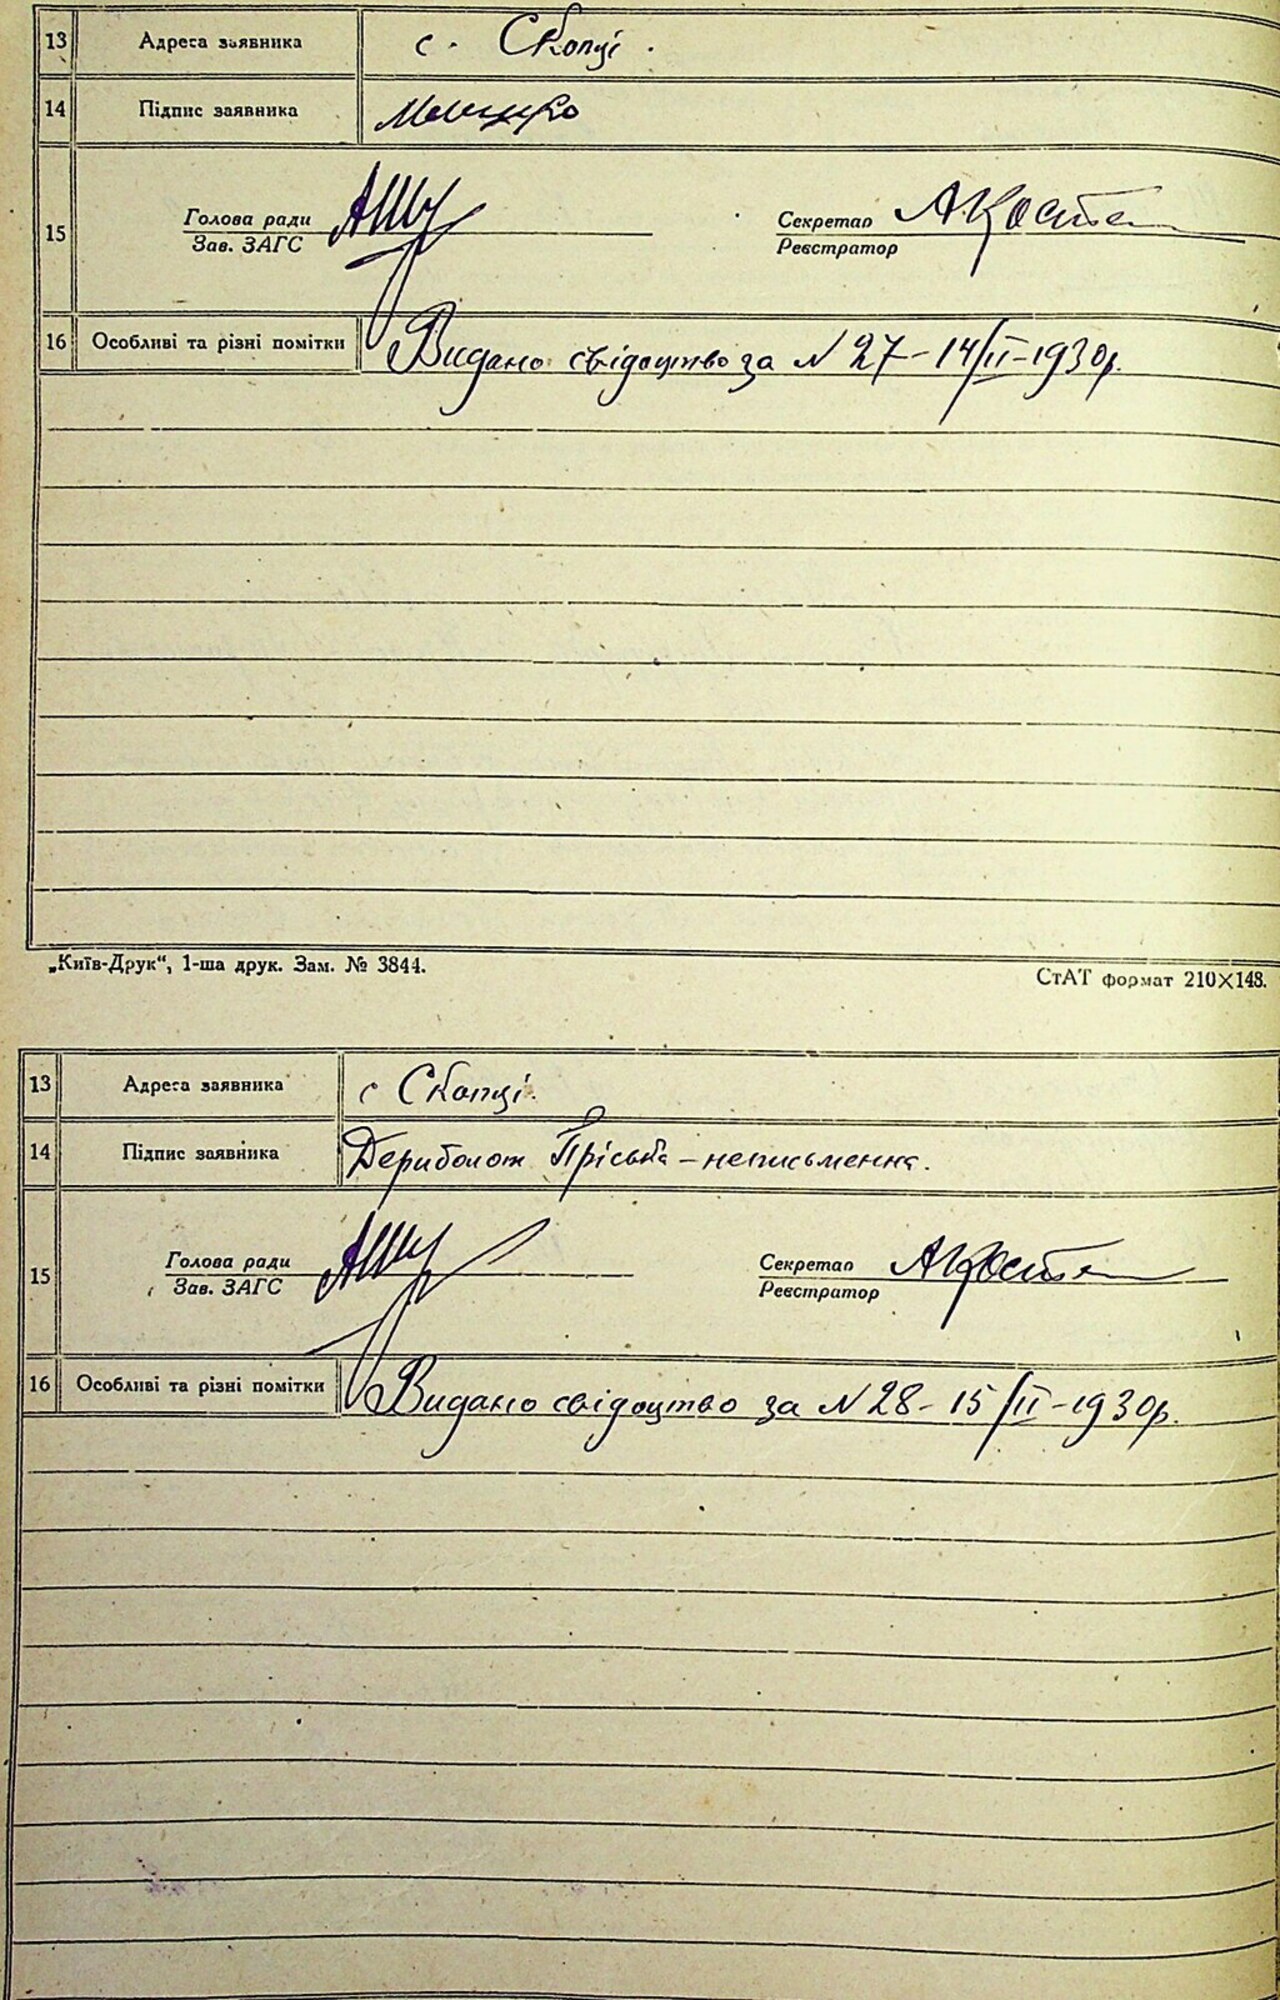 13 Адреса заявника с. Скопці.
14 Підпис заявника
15 Голова ради Секретар
Зав. ЗАГС Реєстратор
16 Особливі та різні помітки Видано свідоцтво за N 27 - 14/II-1930р.
„Київ-Друк“, 1-ша друк. Зам. № 3844.
СтАТ формат 210×148.
13 Адреса заявника с Скопці.
14 Підпис заявника Дериболот Пріська - неписьменна.
15 Голова ради Секретар
Зав. ЗАГС Реєстратор
16 Особливі та різні помітки Видано свідоцтво за N 28 - 15/II-1930р.